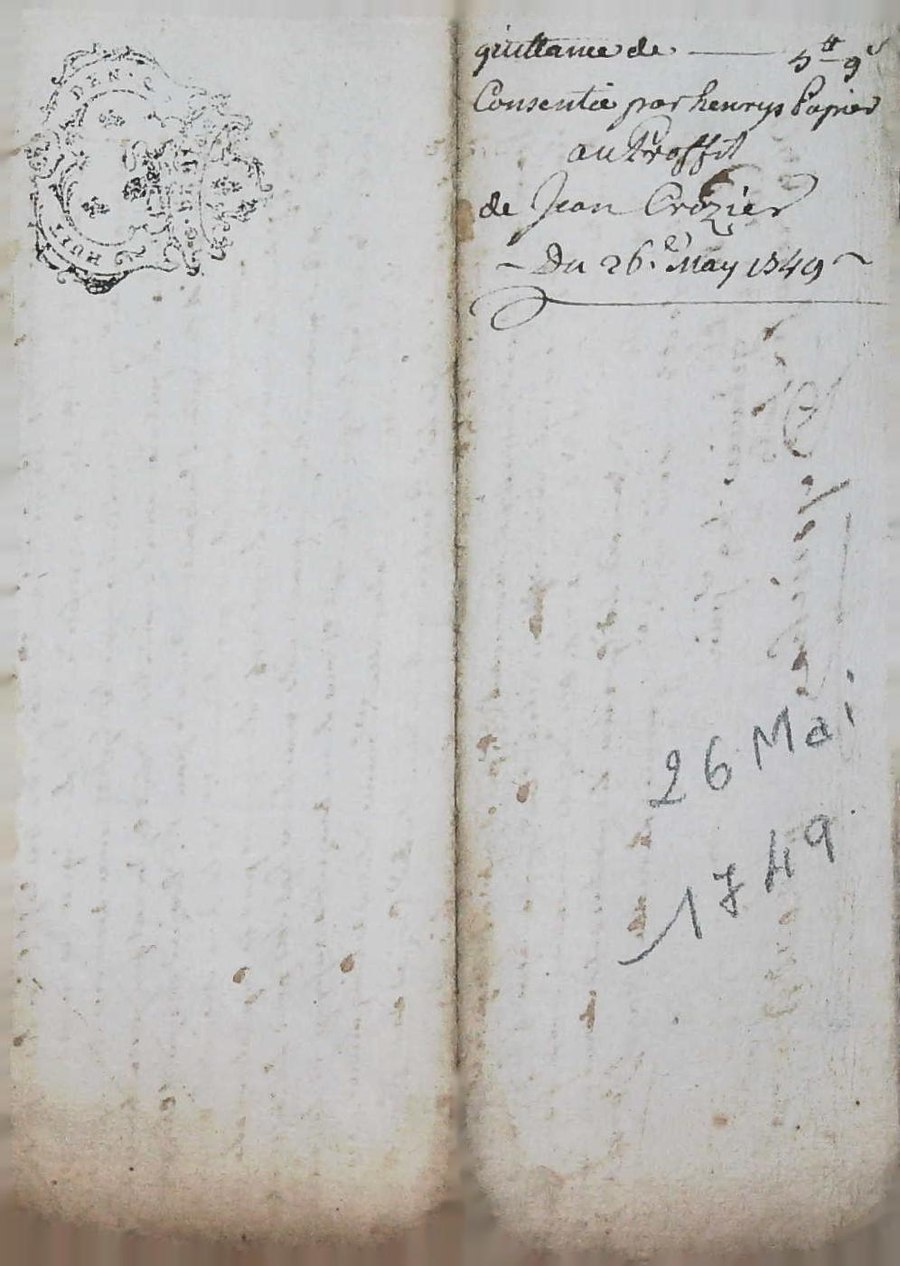 HUIT DEN.
quittance de. — 5ᵗᵗ 9ˢ
Consentie par henrys Papier
au Proffit
de Jean Crozier
~ Du 26.ᵉ May 1749 ~
26 Mai
1749